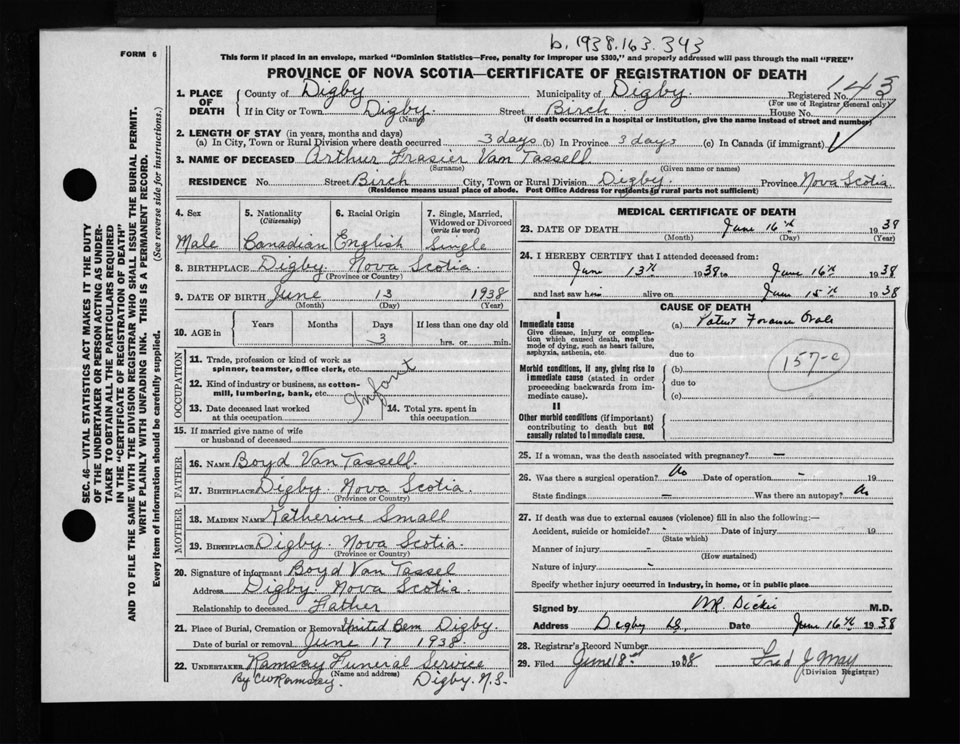 b. 1938.163.343
FORM 6
This form if placed in an envelope, marked "Dominion Statistics—Free, penalty for improper use $300," and properly addressed will pass through the mail "FREE"
PROVINCE OF NOVA SCOTIA—CERTIFICATE OF REGISTRATION OF DEATH
SEC. 46—VITAL STATISTICS ACT MAKES IT THE DUTY
OF THE UNDERTAKER OR PERSON ACTING AS UNDER-
TAKER TO OBTAIN ALL THE PARTICULARS REQUIRED
IN THE "CERTIFICATE OF REGISTRATION OF DEATH"
AND TO FILE THE SAME WITH THE DIVISION REGISTRAR WHO SHALL ISSUE THE BURIAL PERMIT.
WRITE PLAINLY WITH UNFADING INK. THIS IS A PERMANENT RECORD.
Every item of information should be carefully supplied. (See reverse side for instructions.)
1. PLACE OF DEATH
County of Digby Municipality of Digby. Registered No. 143
(For use of Registrar General only)
If in City or Town Digby. Street Birch House No.
(Name) (If death occurred in a hospital or institution, give the name instead of street and number)
2. LENGTH OF STAY (in years, months and days)
(a) In City, Town or Rural Division where death occurred 3 days (b) In Province 3 days (c) In Canada (if immigrant)
3. NAME OF DECEASED Arthur Frasier Van Tassell
(Surname) (Given name or names)
RESIDENCE No. Street Birch City, Town or Rural Division Digby. Province Nova Scotia
(Residence means usual place of abode. Post Office Address for residents in rural parts not sufficient)
4. Sex 5. Nationality (Citizenship) 6. Racial Origin 7. Single, Married, Widowed or Divorced (write the word)
Male Canadian English Single
8. BIRTHPLACE Digby. Nova Scotia.
(Province or Country)
9. DATE OF BIRTH June 13 1938
(Month) (Day) (Year)
10. AGE in Years Months Days If less than one day old
3 hrs. or min.
OCCUPATION
11. Trade, profession or kind of work as
spinner, teamster, office clerk, etc.
12. Kind of industry or business, as cotton-
mill, lumbering, bank, etc.
Infant
13. Date deceased last worked
at this occupation
14. Total yrs. spent in
this occupation
15. If married give name of wife
or husband of deceased
FATHER
16. NAME Boyd Van Tassell
17. BIRTHPLACE Digby. Nova Scotia.
(Province or Country)
MOTHER
18. MAIDEN NAME Katherine Small
19. BIRTHPLACE Digby. Nova Scotia.
(Province or Country)
20. Signature of informant Boyd Van Tassel
Address Digby. Nova Scotia.
Relationship to deceased Father
21. Place of Burial, Cremation or Removal United Cem Digby.
Date of burial or removal June 17 1938.
22. UNDERTAKER Ramsay Funeral Service
(Name and address)
By CW Ramsay. Digby. N.S.
MEDICAL CERTIFICATE OF DEATH
23. DATE OF DEATH June 16th 1938
(Month) (Day) (Year)
24. I HEREBY CERTIFY that I attended deceased from:
June 13th 1938 to June 16th 1938
and last saw him alive on June 15th 1938
CAUSE OF DEATH
I
Immediate cause
Give disease, injury or complica-
tion which caused death, not the
mode of dying, such as heart failure,
asphyxia, asthenia, etc.
(a) Patent Foramen Ovale
due to
Morbid conditions, if any, giving rise to
immediate cause (stated in order
proceeding backwards from im-
mediate cause).
(b)
157-e
due to
(c)
II
Other morbid conditions (if important)
contributing to death but not
causally related to immediate cause.
25. If a woman, was the death associated with pregnancy? —
26. Was there a surgical operation? No Date of operation - 19
State findings — Was there an autopsy? No
27. If death was due to external causes (violence) fill in also the following:—
Accident, suicide or homicide? - Date of injury 19
(State which)
Manner of injury -
(How sustained)
Nature of injury -
Specify whether injury occurred in industry, in home, or in public place
Signed by Dickie M.D.
Address Digby N.S. Date June 16th 1938
28. Registrar's Record Number
29. Filed June 18th 1938 Fred J May
(Division Registrar)